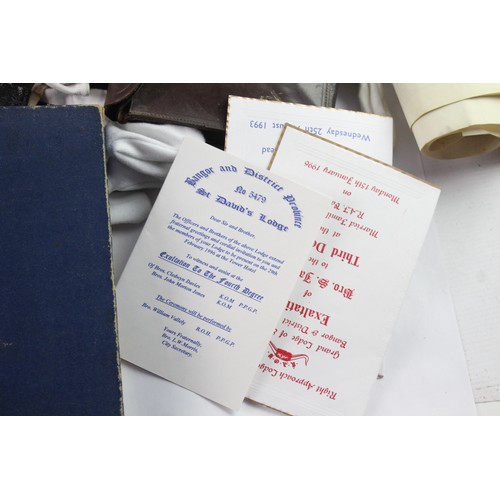 Bangor and District Province
No 5479
St David's Lodge
Dear Sir and Brother,
The Officers and Brothers of the above Lodge extend
fraternal greetings and cordial invitation to you and
the members of your Lodge to be present on the 29th
February 1996 at the Tower Hotel
To witness and assist at the
Exaltation To The Fourth Degree
Of Bron. Cledwyn Davies K.O.M P.P.G.P.
Bron. John Morton Jones K.O.M
The Ceremony will be performed by
Bro. William Vallely R.O.H P.P.G.P.
Yours Fraternally,
Bro. L.W.Morris,
City Secretary.
Wednesday 25th
ust 1993
ead
Right Approach Lodge
Grand Lodge of
Bangor & District
Exaltati
of
Bro. S. Ja
to the
Third De
at the
Married Famil
R.A.F.
on
Monday 15th January 1996